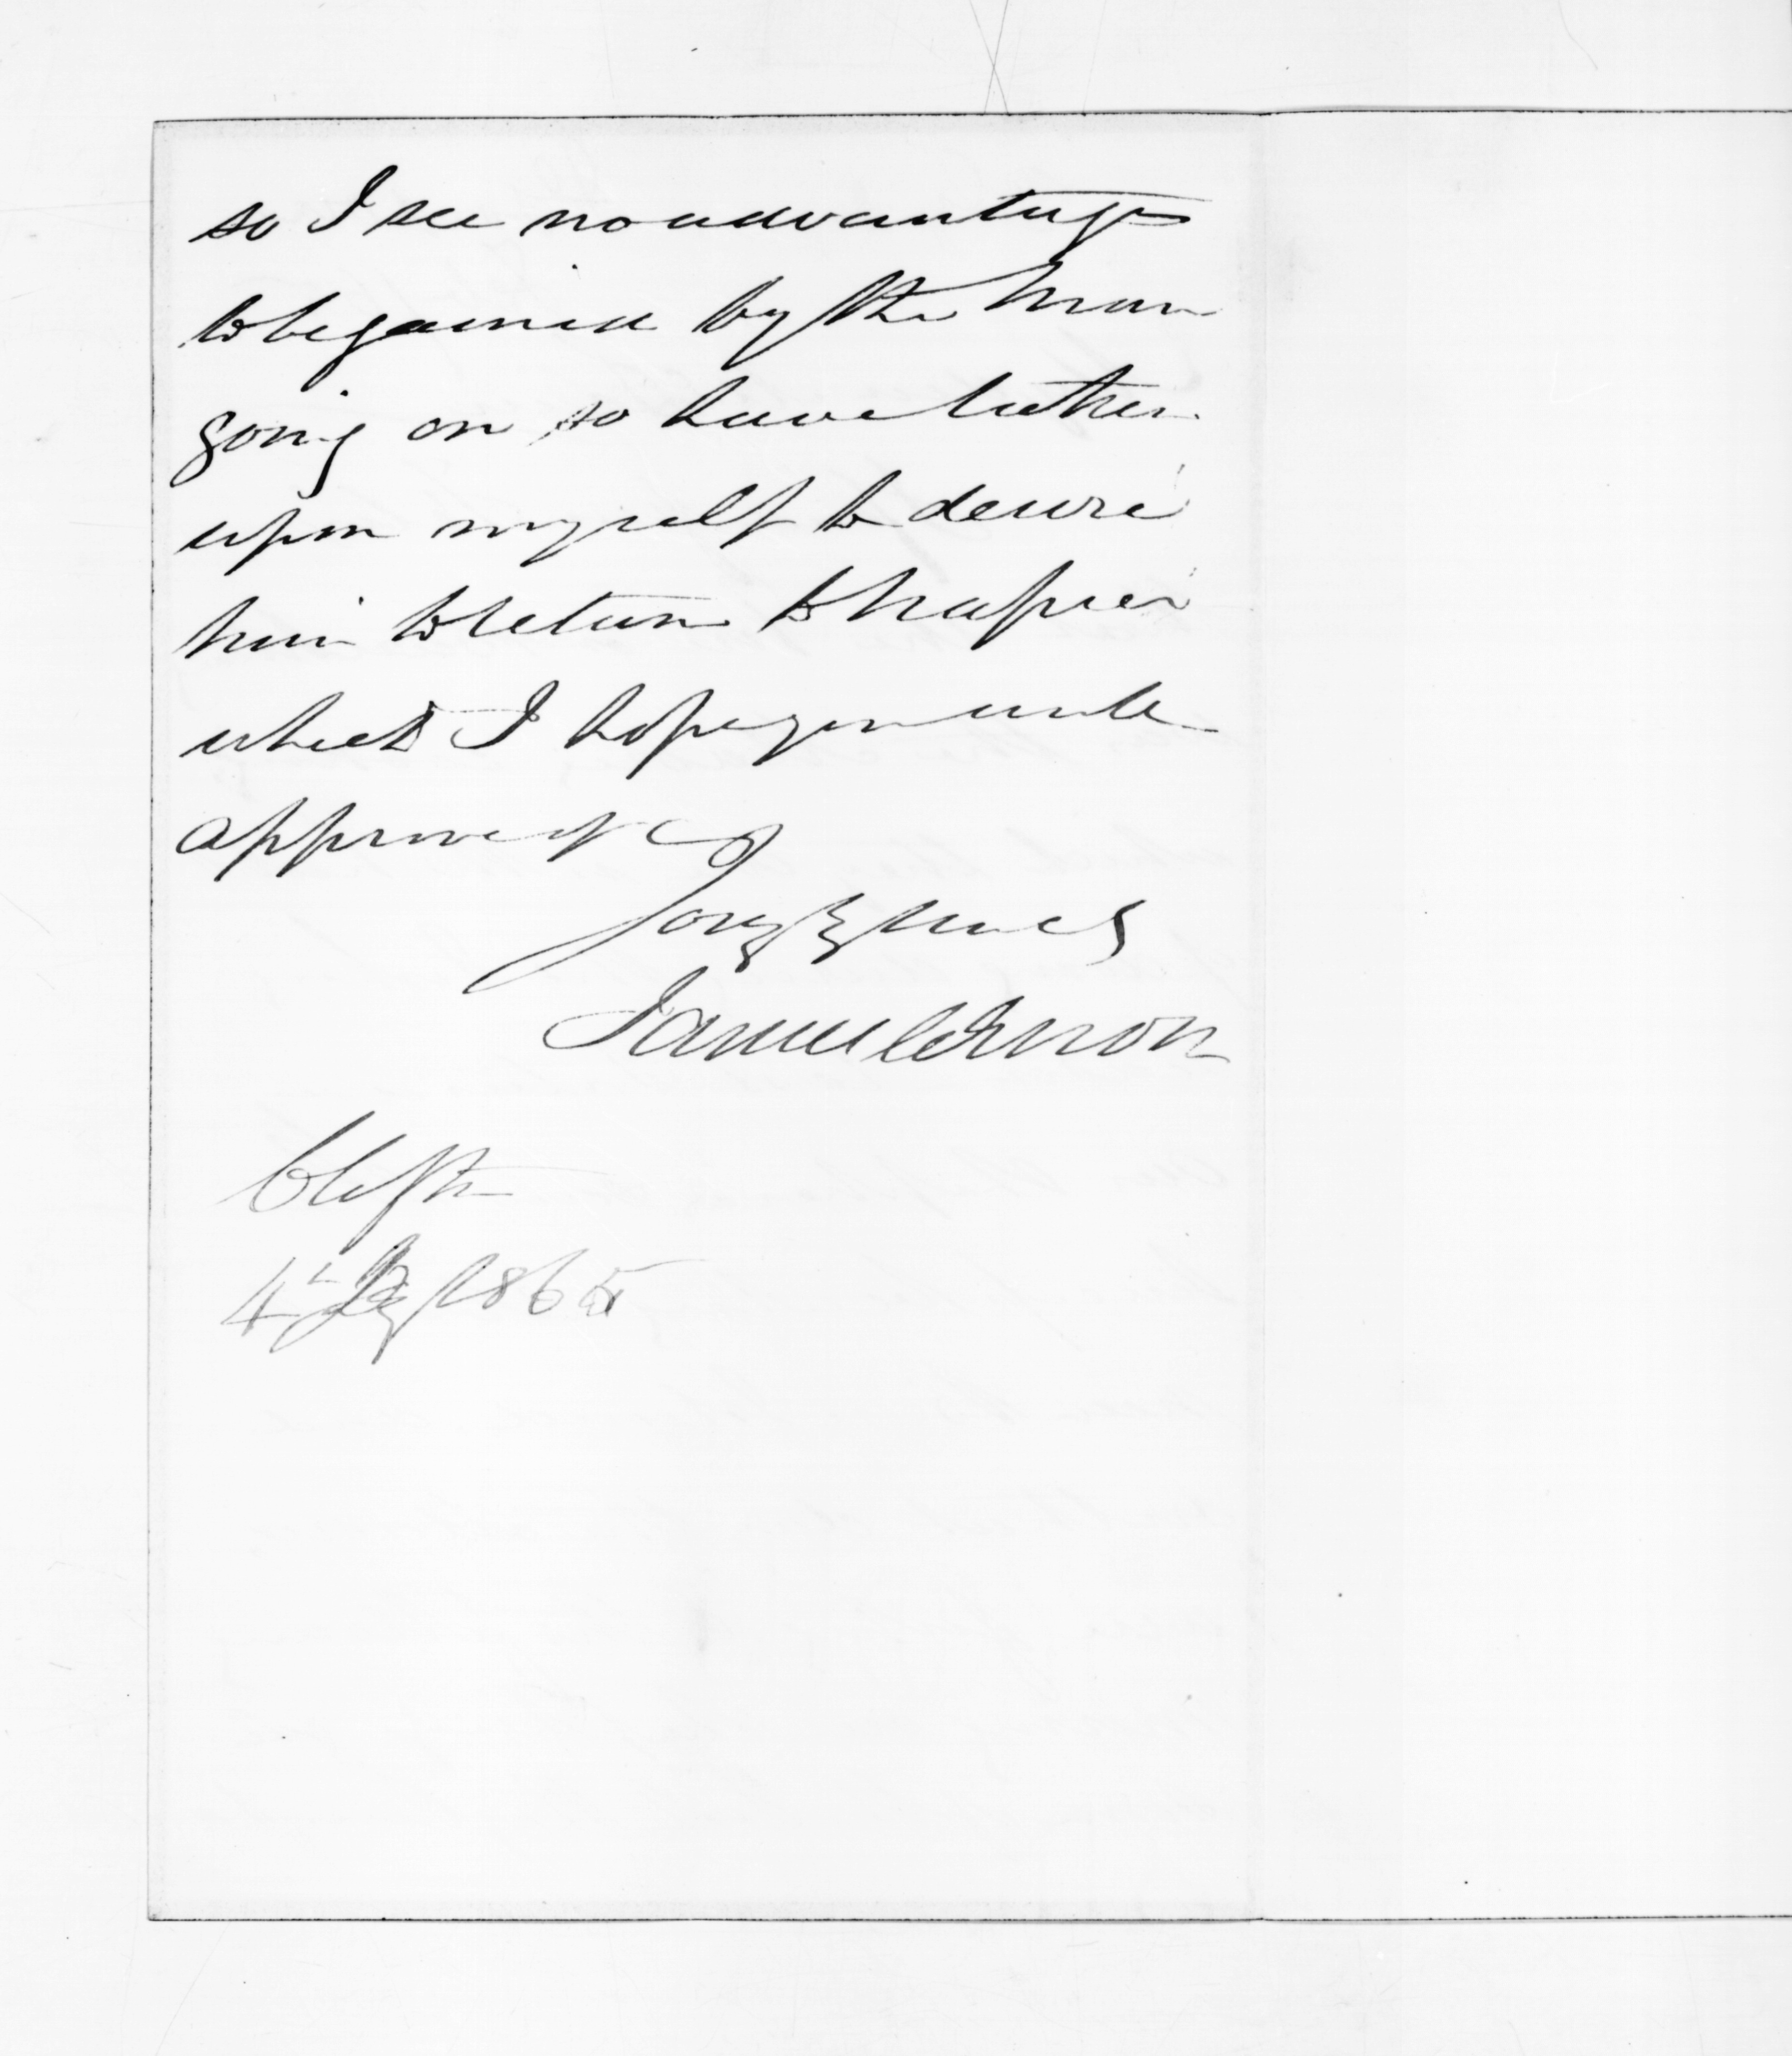 so I see no advantage
to be gained by the man
going on so have taken
upon myself to desire
him to return to Napier
which I hope you will
approve of
Yours
Clifton
4 1865